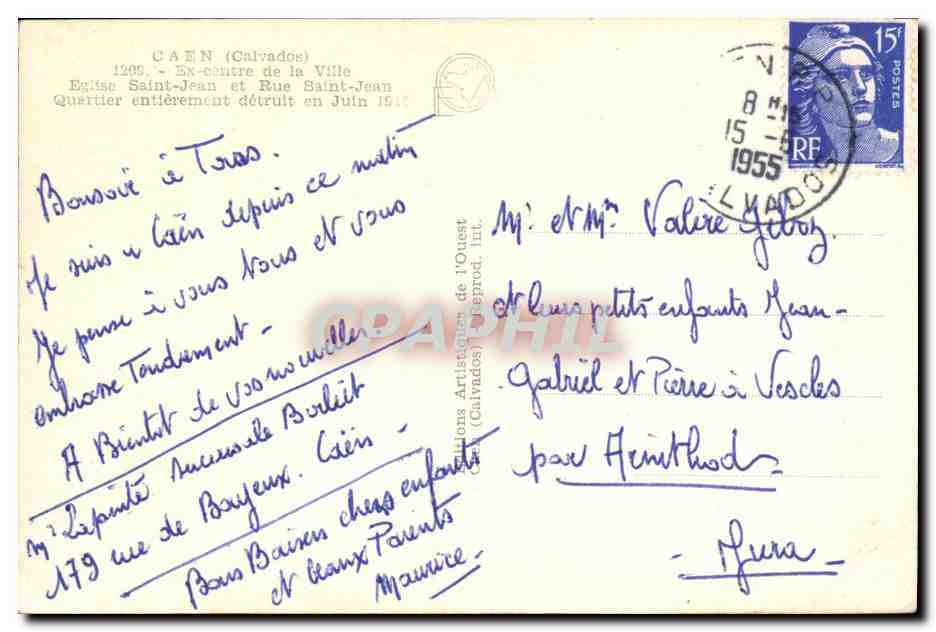 CAEN (Calvados)
1209. - Ex-centre de la Ville
Eglise Saint-Jean et Rue Saint-Jean
Quartier entièrement détruit en Juin 194
Bonsoir à Tous.
Je suis a Caën depuis ce matin
Je pense à vous Tous et vous
embrasse Tendrement -
A Bientot de vos nouvelles.
Mr Lapinte succursale Berliet
179 rue de Bayeux. Caën -
Bons Baisers chers enfants
et beaux Parents
Maurice -
Editions Artistiques de l'Ouest
Caen (Calvados) - Reprod. int.
CPAPHIL
8 H
15 -
1955
LVADOS
15F
POSTES
RF
Mr et Mme Valère
et leurs petits enfants Jean-
Gabriel et Pierre à Vescles
par Arinthod -
- Jura -